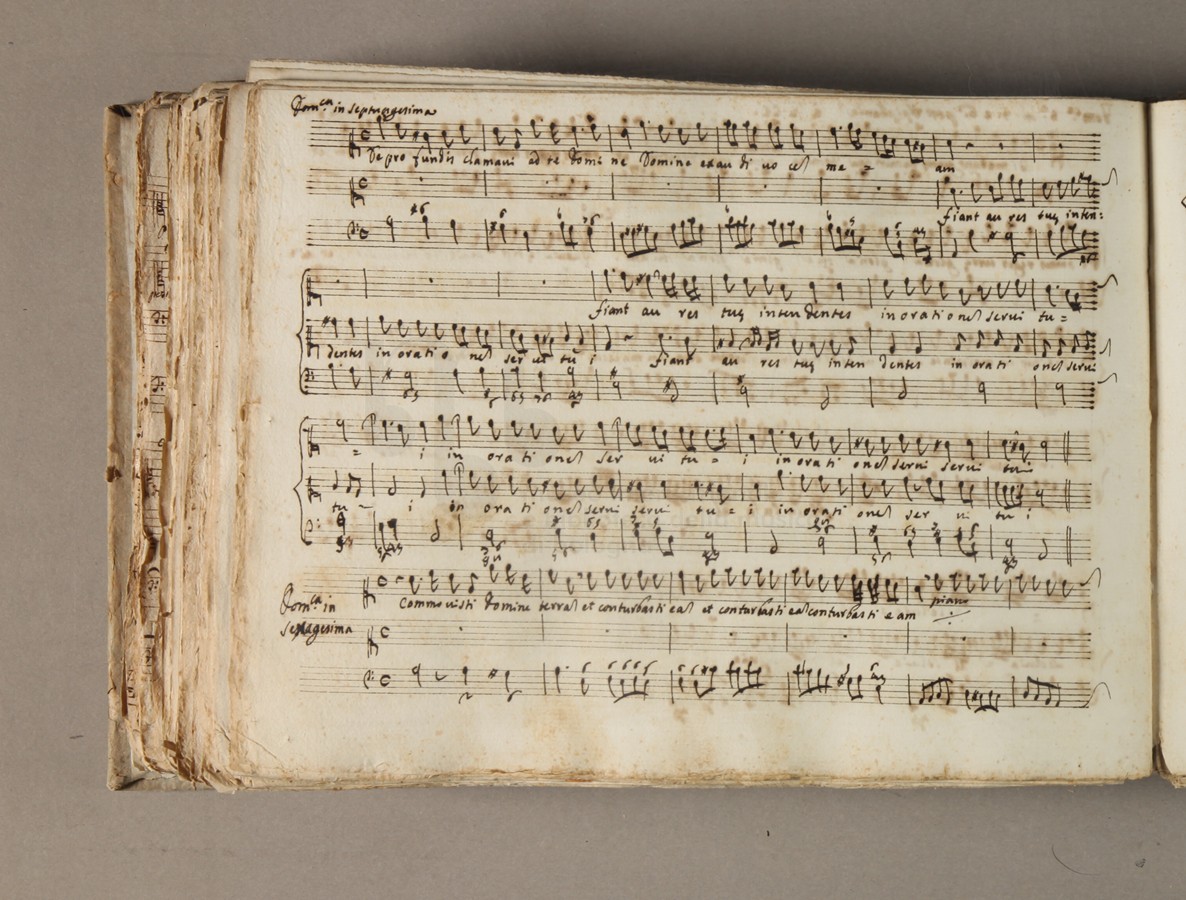 Dom.ca in septuagesima
De pro fundis clamavi ad te Domi ne Domine exau di vo ces me = am
fiant au res tuę inten:
fiant au res tuę intendentes in orationes servi tu=
dentes in orati o nes ser vi tu i fiant au res tuę inten dentes in orati ones servi
= i in orati ones ser vi tu = i in orati ones servi servi tui
tu - i in ora ti ones servi servi tu = i in orati ones ser vi tu i
Dom.ca in
sexagesima
Commovisti Domine terras et conturbasti eas et conturbasti eas conturbasti eam piano